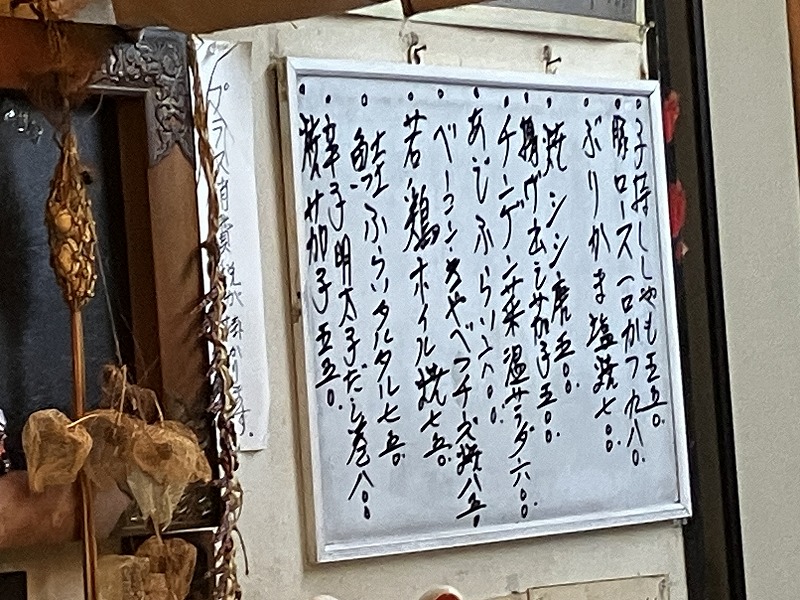 子持ししゃも五五〇.
豚ロース一口かつ九八〇.
ぶりかま塩焼七〇〇.
焼シシ唐五〇〇.
揚ゲ出シ茄子五〇〇.
チンゲン菜温サラダ六〇〇.
あじふらい六八〇.
ベーコンきゃべつチーズ焼八五〇
若鶏ホイル焼七五〇.
鮭ふらいタルタル七五〇.
辛子明太子だし巻八〇〇
焼茄子五五〇.
プラス消費税が掛かります。